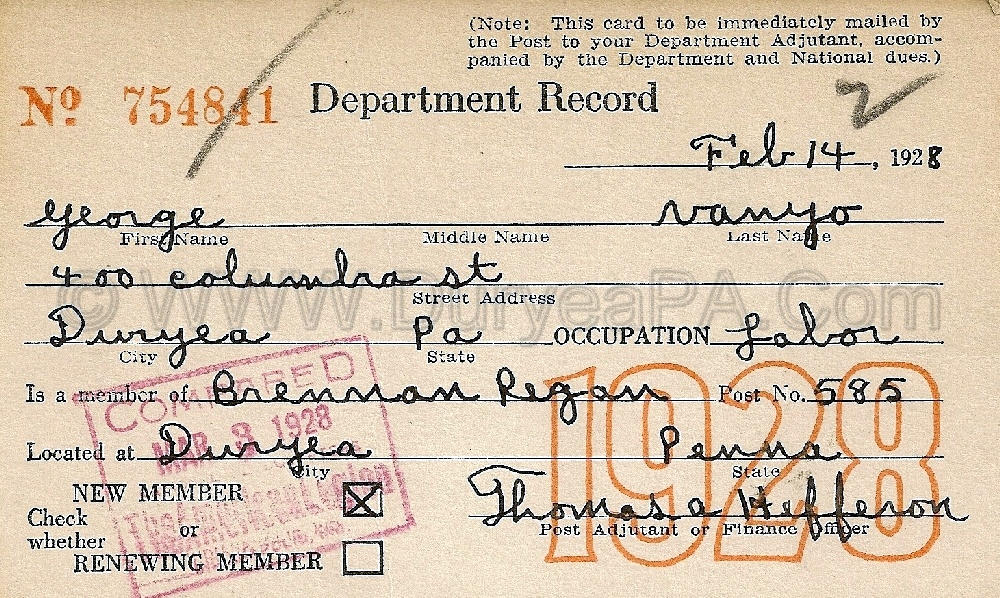 (Note: This card to be immediately mailed by
the Post to your Department Adjutant, accom-
panied by the Department and National dues.)
No 754841 Department Record 2
Feb 14, 1928
George Vanyo
First Name Middle Name Last Name
400 columbia st
Street Address
© WWW.DuryeaPA.Com
Duryea Pa OCCUPATION Labor
City State
Is a member of Brennan Regan Post No. 585
COMPARED
MAR 3 1928
1928
Located at Duryea Penna
City State
NEW MEMBER
Check
or
whether
RENEWING MEMBER
The American Legion
Thomas a Hefferon
Post Adjutant or Finance Officer